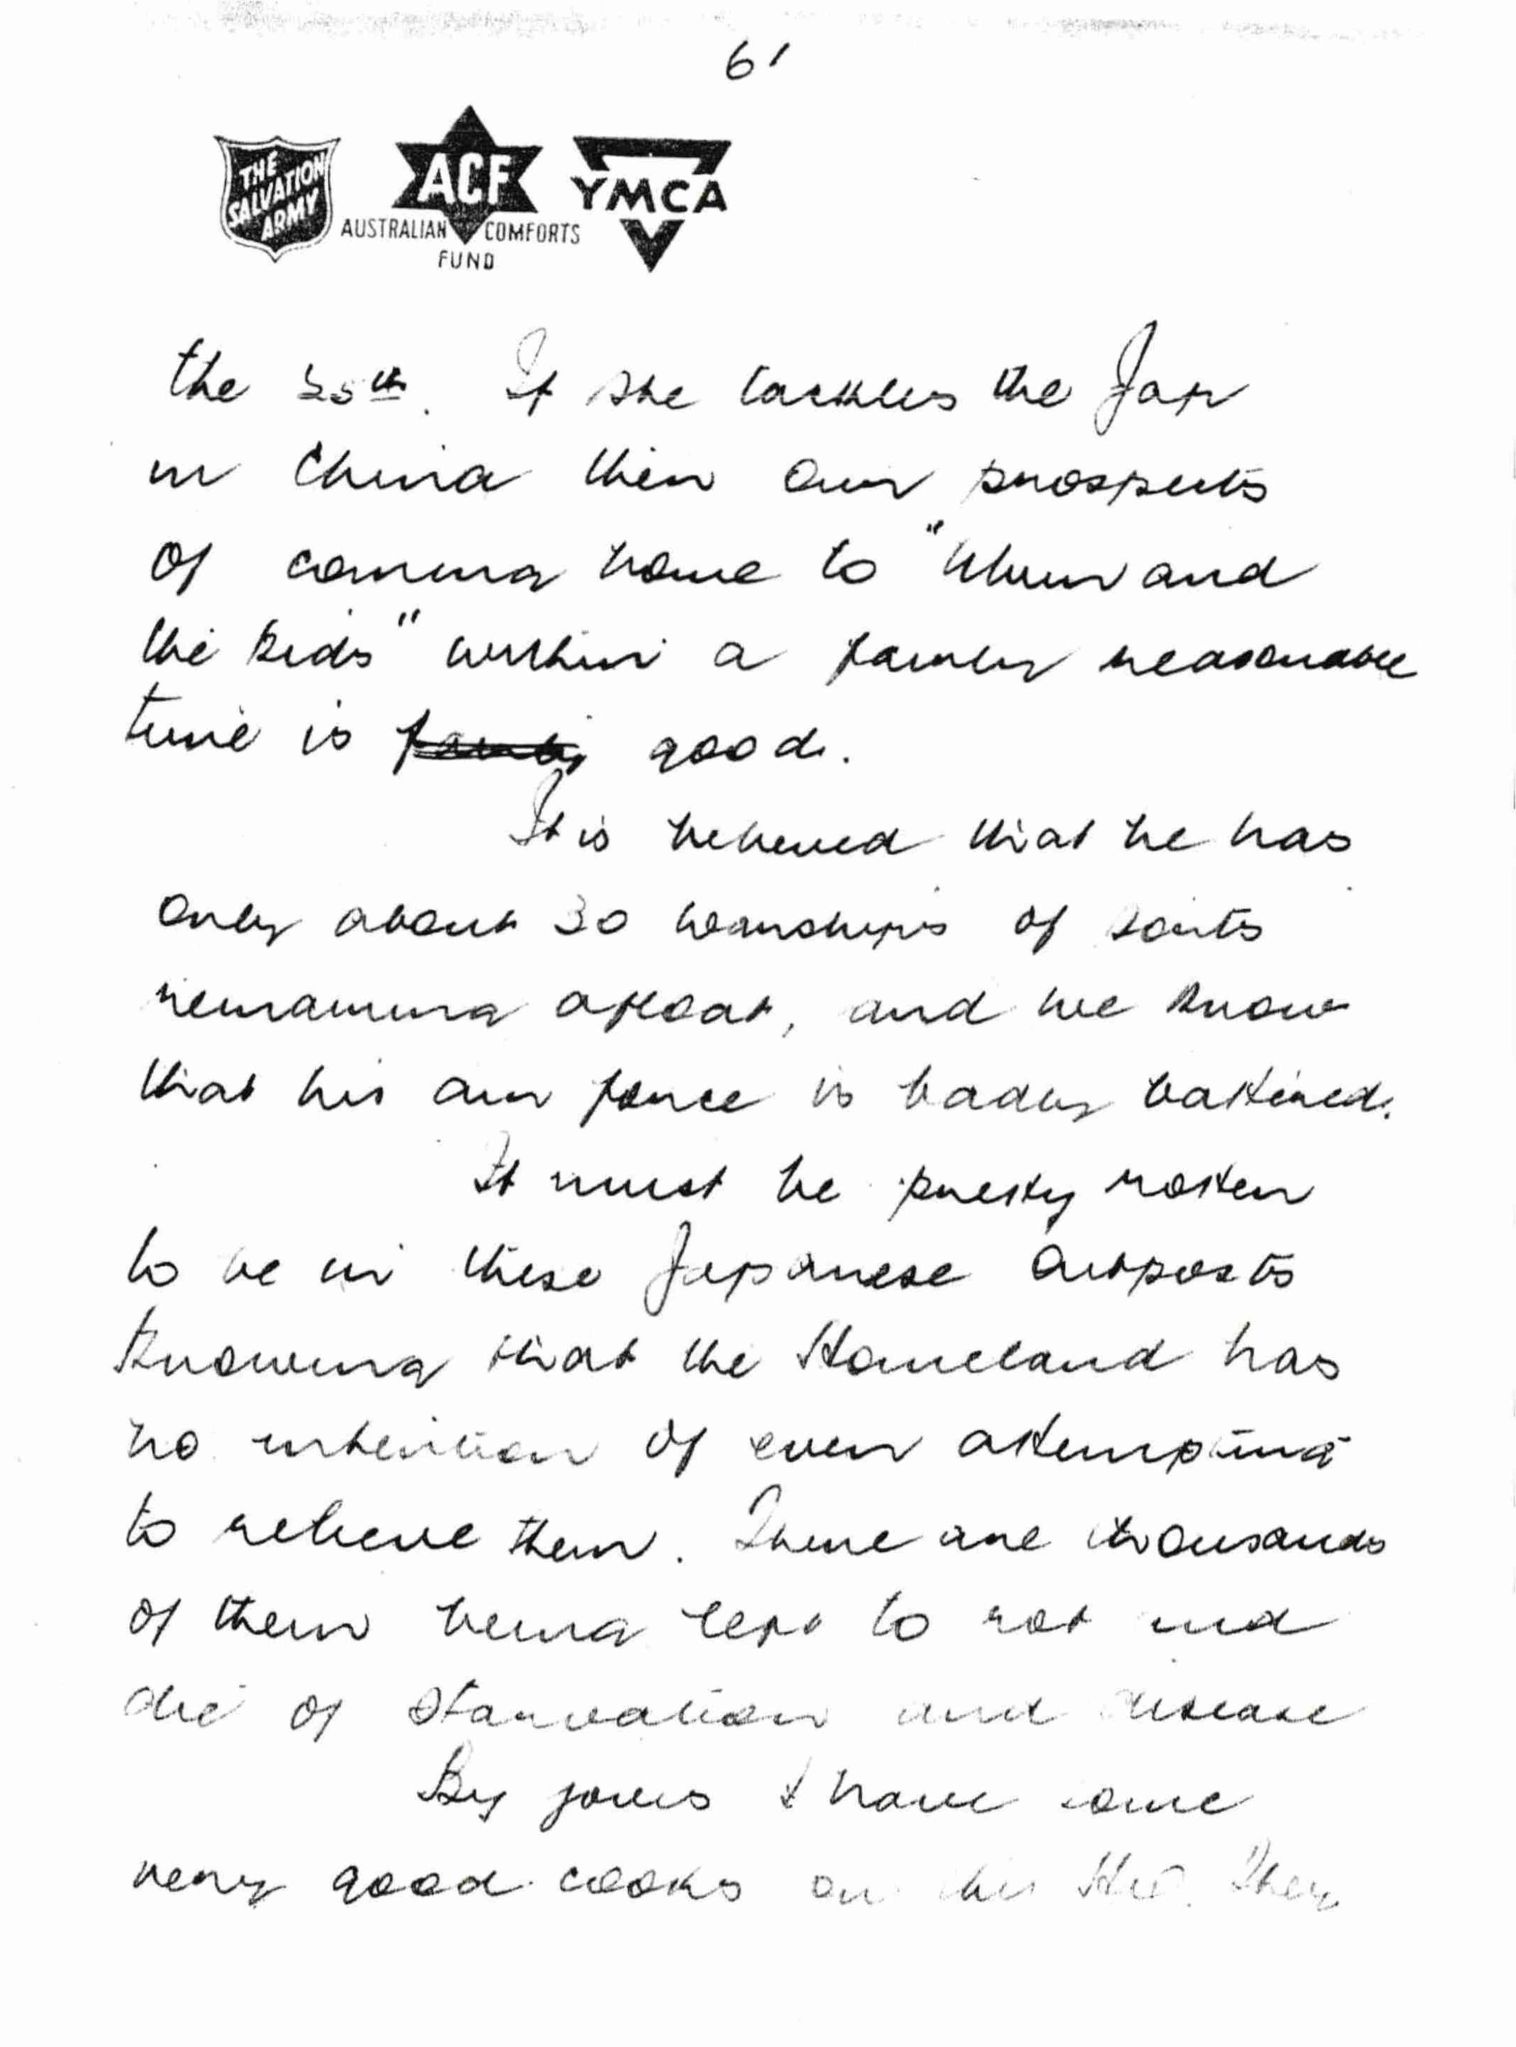 61
THE SALVATION ARMY
ACF
AUSTRALIAN COMFORTS FUND
YMCA
the 25th. If she tackles the Jap
in China then our prospects
of coming home to "Mum and
the kids" within a fairly reasonable
time is fairly good.
It is believed that he has
only about 30 warships of sorts
remaining afloat, and we know
that his air force is badly battered.
It must be pretty rotten
to be in these Japanese outposts
knowing that the Homeland has
no intention of even attempting
to relieve them. There are thousands
of them being left to rot and
die of starvation and disease
By joves I have some
very good cooks on this HQ. They